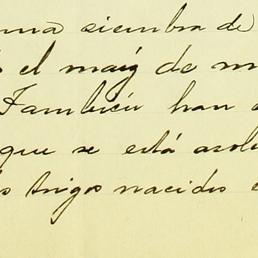 una siembra de
el maiz de m
Tambien han
que se está asola
os trigos nacidos e